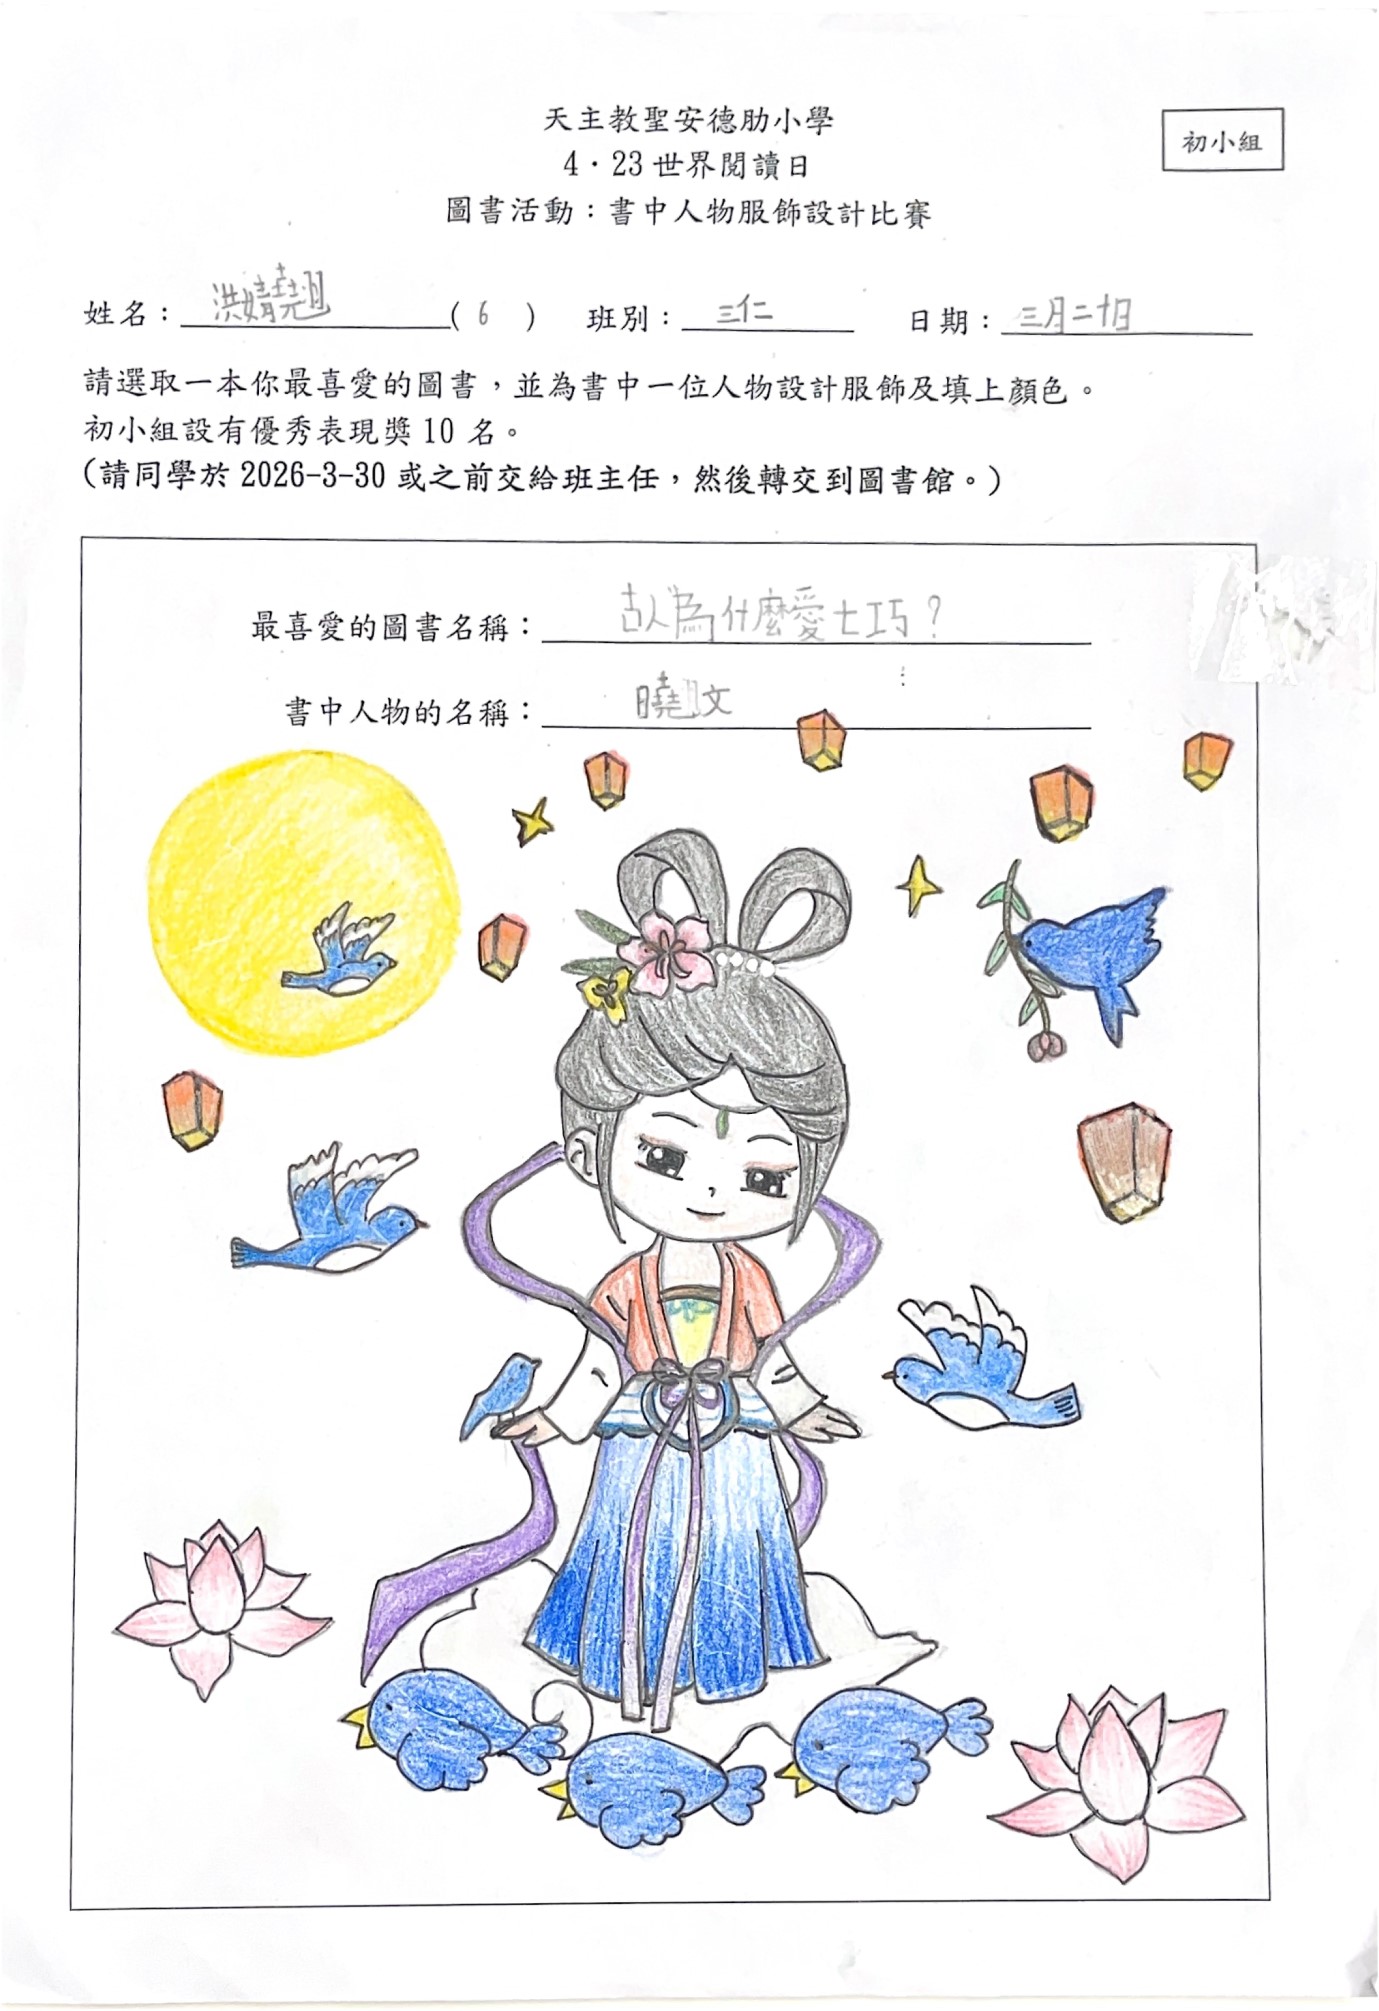 天主教聖安德肋小學
初小組
4·23 世界閱讀日
圖書活動：書中人物服飾設計比賽
姓名：洪婧翹 ( 6 ) 班別：三仁 日期：三月二十日
請選取一本你最喜愛的圖書，並為書中一位人物設計服飾及填上顏色。
初小組設有優秀表現獎 10 名。
(請同學於 2026-3-30 或之前交給班主任，然後轉交到圖書館。)
最喜愛的圖書名稱：古人為什麼愛七巧？
書中人物的名稱：曉翹文